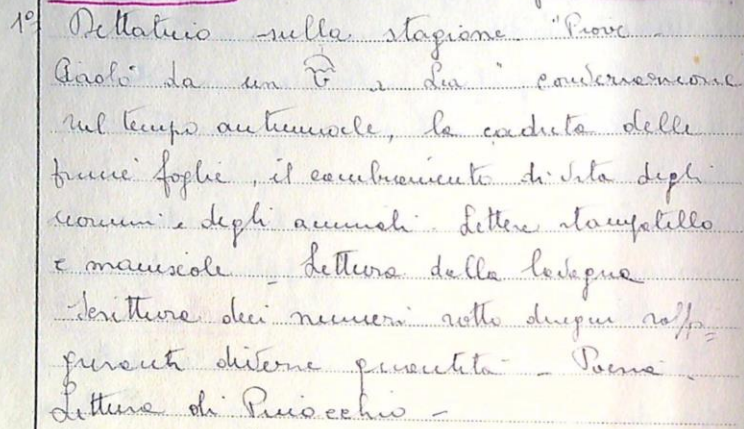 1° Dettatura sulla stagione "Piove -
da un e Lea" conversazione
sul tempo autunnale, la caduta delle
prime foglie, il cambiamento di vita degli
uomini e degli animali. Lettere stampatello
e maiuscole - Lettura dalla lavagna
Scrittura dei numeri sotto disegni raffi=
guranti diverse quantità - Poesia.
Lettura di Pinocchio -